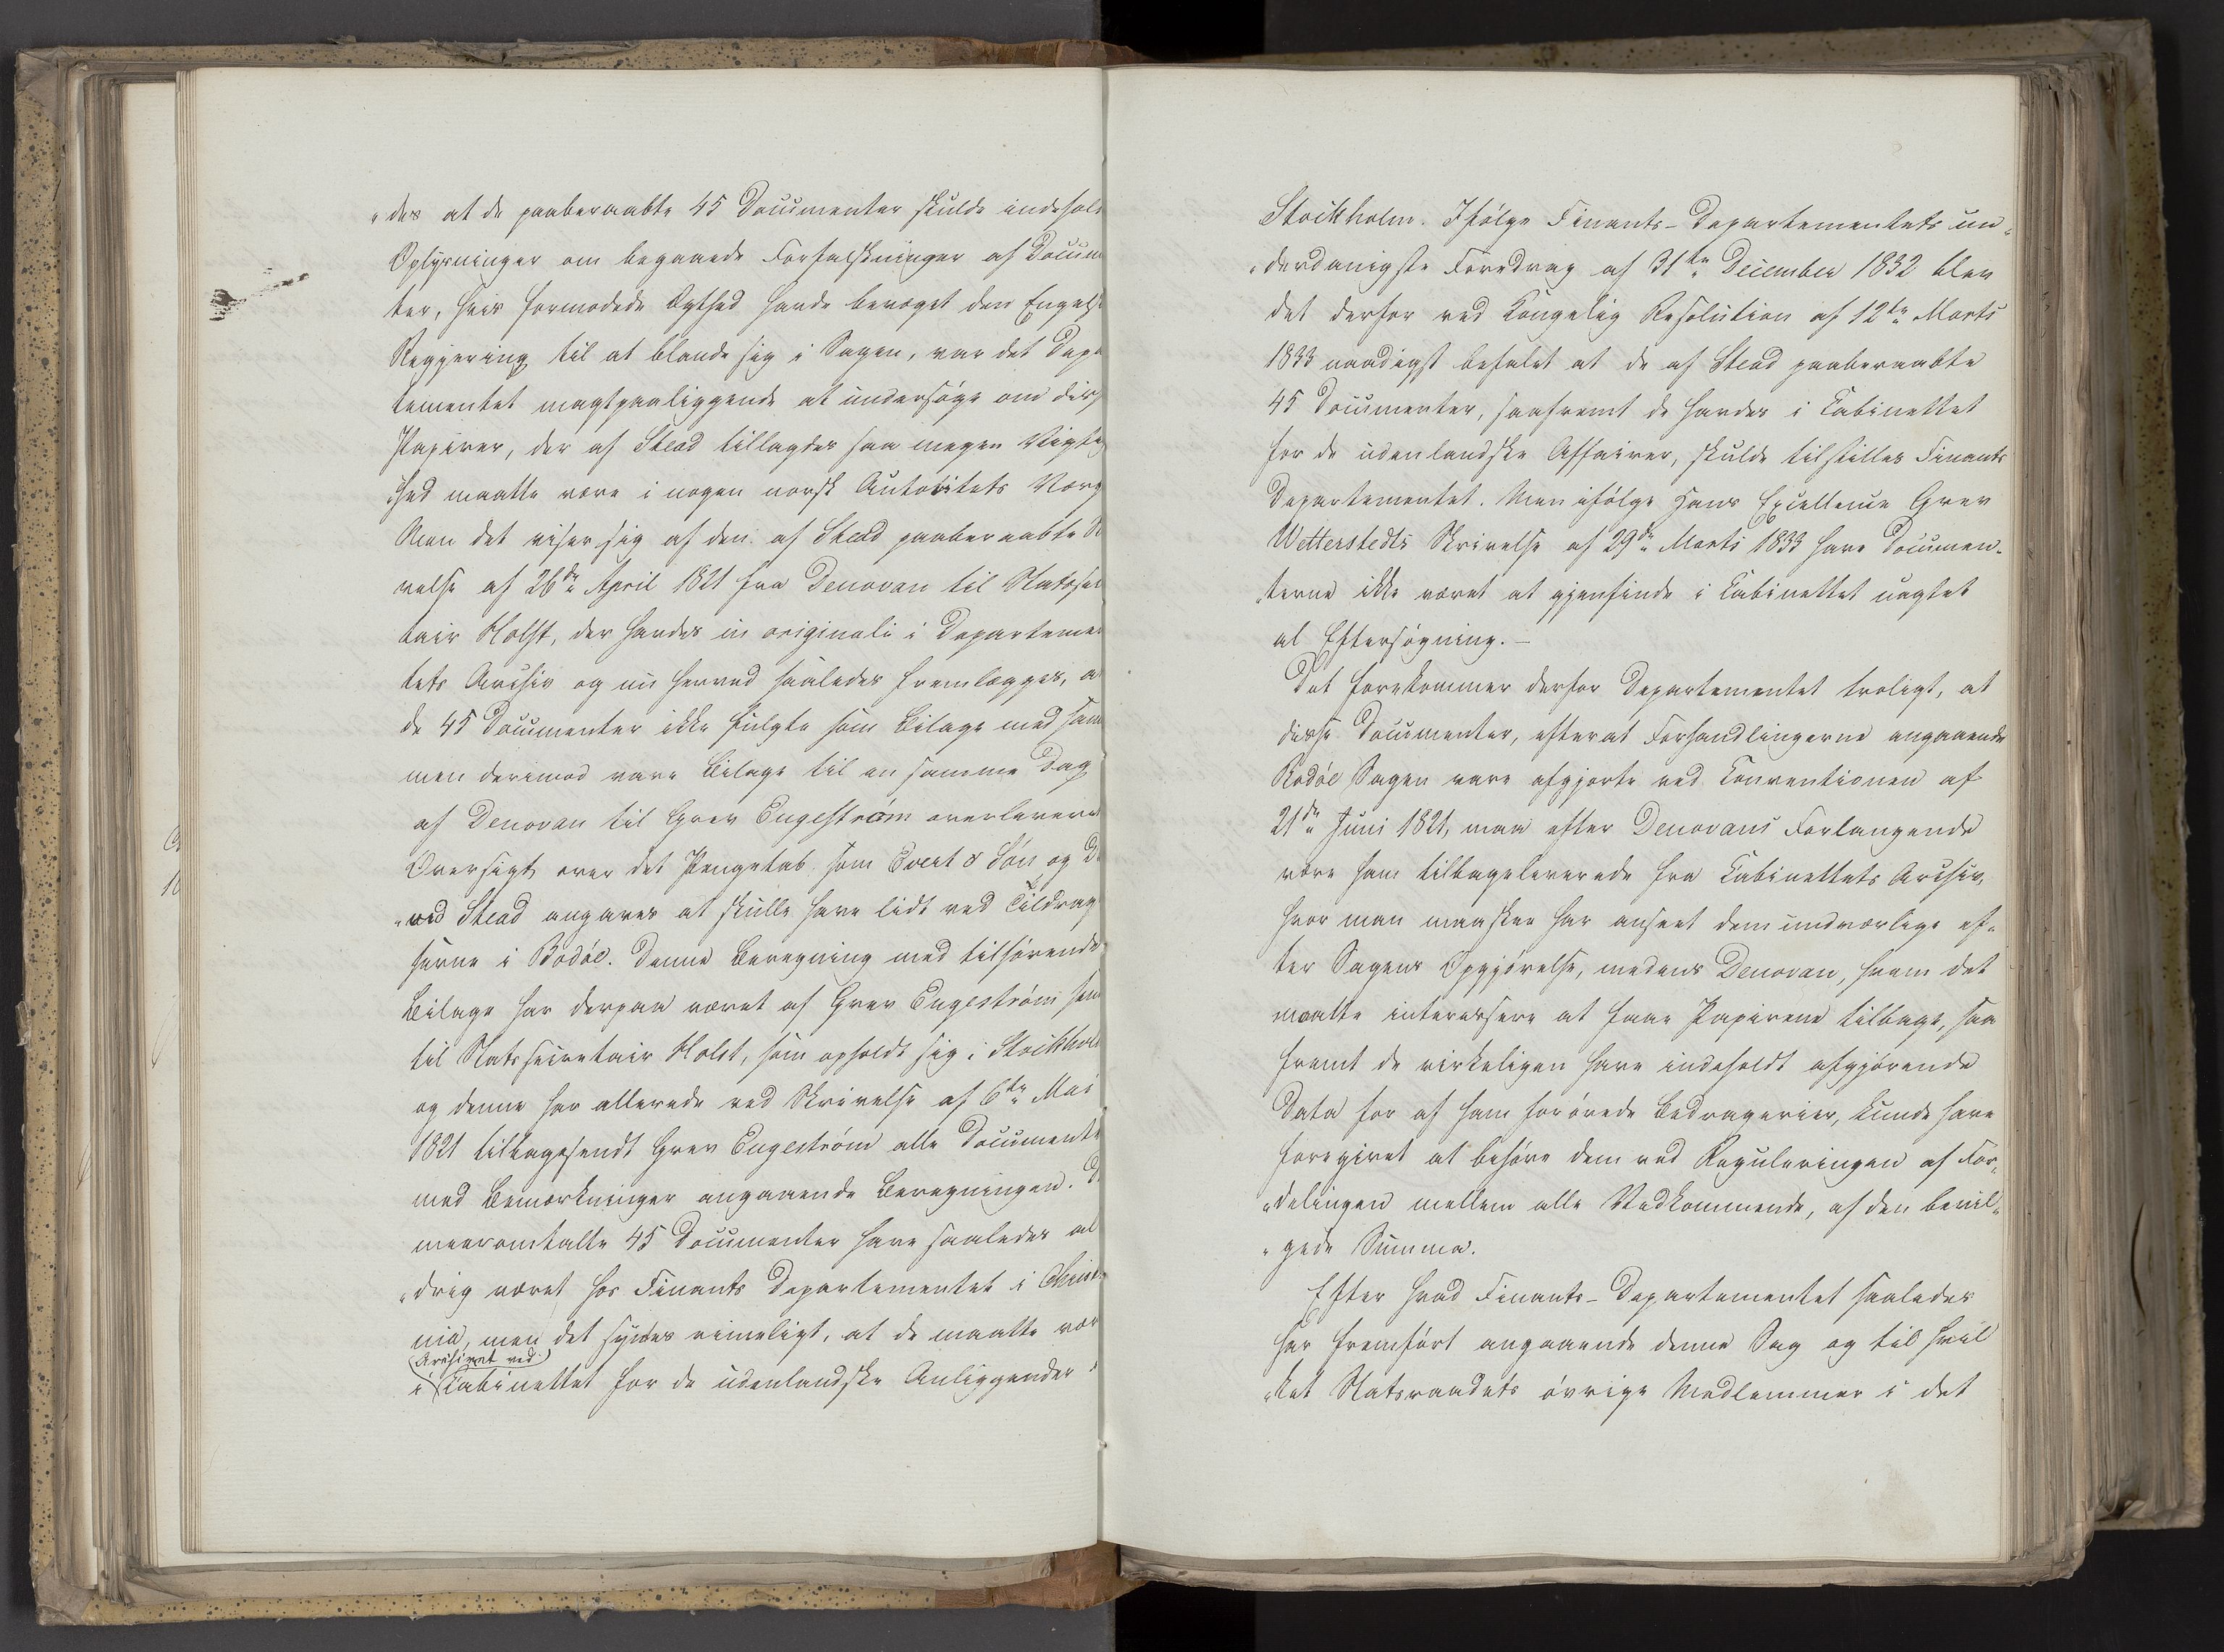 „des at de paaberaabte 45 Documenter skulde indehol
Oplysninger om begaaede Forfalskninger af Docum
ter, hvis formodede Ægthed havde bevæget den Engels
Regjering til at blande sig i Sagen, var det Depa
tementet magtpaaliggende at undersøge om diss
Papirer, der af Stead tillagdes saa megen Vigtig
hed maatte være i nogen norsk Autoritets Værg
Men det viser sig af den af Stead paaberaabte Sk
velse af 26de April 1821 fra Denovan til Statssec
tair Holst, der havdes in originali i Departemen
tets Archiv og nu herved saaledes fremlægges, a
de 45 Documenter ikke fulgte som Bilage med sam
men derimod vare Bilage til en samme Dag
af Denovan til Grev Engestrøm overlevere
Oversigt over det Pengetab som Everth & Søn og D
„vid Stead angaves at skulle have lidt ved Tildrag
serne i Bodøe. Denne Beregning med tilhørende
Bilage har derpaa været af Grev Engestrøm sen
til Statssecretair Holst, som opholdt sig i Stockhol
og denne har allerede ved Skrivelse af 6te Mai
1821 tilbagesendt Grev Engestrøm alle Documente
med Bemærkninger angaaende Beregningen. D
meeromtalte 45 Documenter have saaledes al
„drig været hos Finants Departementet i Christ
nia, men det synes rimeligt, at de maatte vær
Archivet ved
i Cabinettet for de udenlandske Anliggender i
Stockholm. Ifølge Finants-Departementets un„
„derdanigste Foredrag af 31te December 1832 blev
det derfor ved Kongelig Resolution af 12te Marts
1833 naadigst befalet at de af Stead paaberaabte
45 Documenter, saafremt de havdes i Cabinettet
for de udenlandske Affairer, skulde tilstilles Finants
Departementet. Men ifølge Hans Excellence Grev
Wetterstedts Skrivelse af 29de Marts 1833 have Documen„
„terne ikke været at gjenfinde i Cabinettet uagtet
al Eftersøgning. –
Det forekommer derfor Departementet troligt, at
disse Documenter, efterat Forhandlingerne angaaende
Bodøe Sagen vare afgjorte ved Conventionen af
21de Juni 1821, maa efter Denovans Forlangende
være ham tilbageleverede fra Cabinettets Archiv,
hvor man maaskee har anseet dem undværlige ef„
ter Sagens Opgjørelse, medens Denovan, hvem det
maatte interessere at faae Papirene tilbage, saa
fremt de virkeligen have indeholdt afgjørende
Data for af ham forøvede Bedragerier, kunde have
foregivet at behøve dem ved Reguleringen af For„
„delingen mellem alle Vedkommende, af den bevil„
„gede Summa.
Efter hvad Finants-Departementet saaledes
har fremført angaaende denne Sag og til hvil
„ket Statsraadets øvrige Medlemmer i det